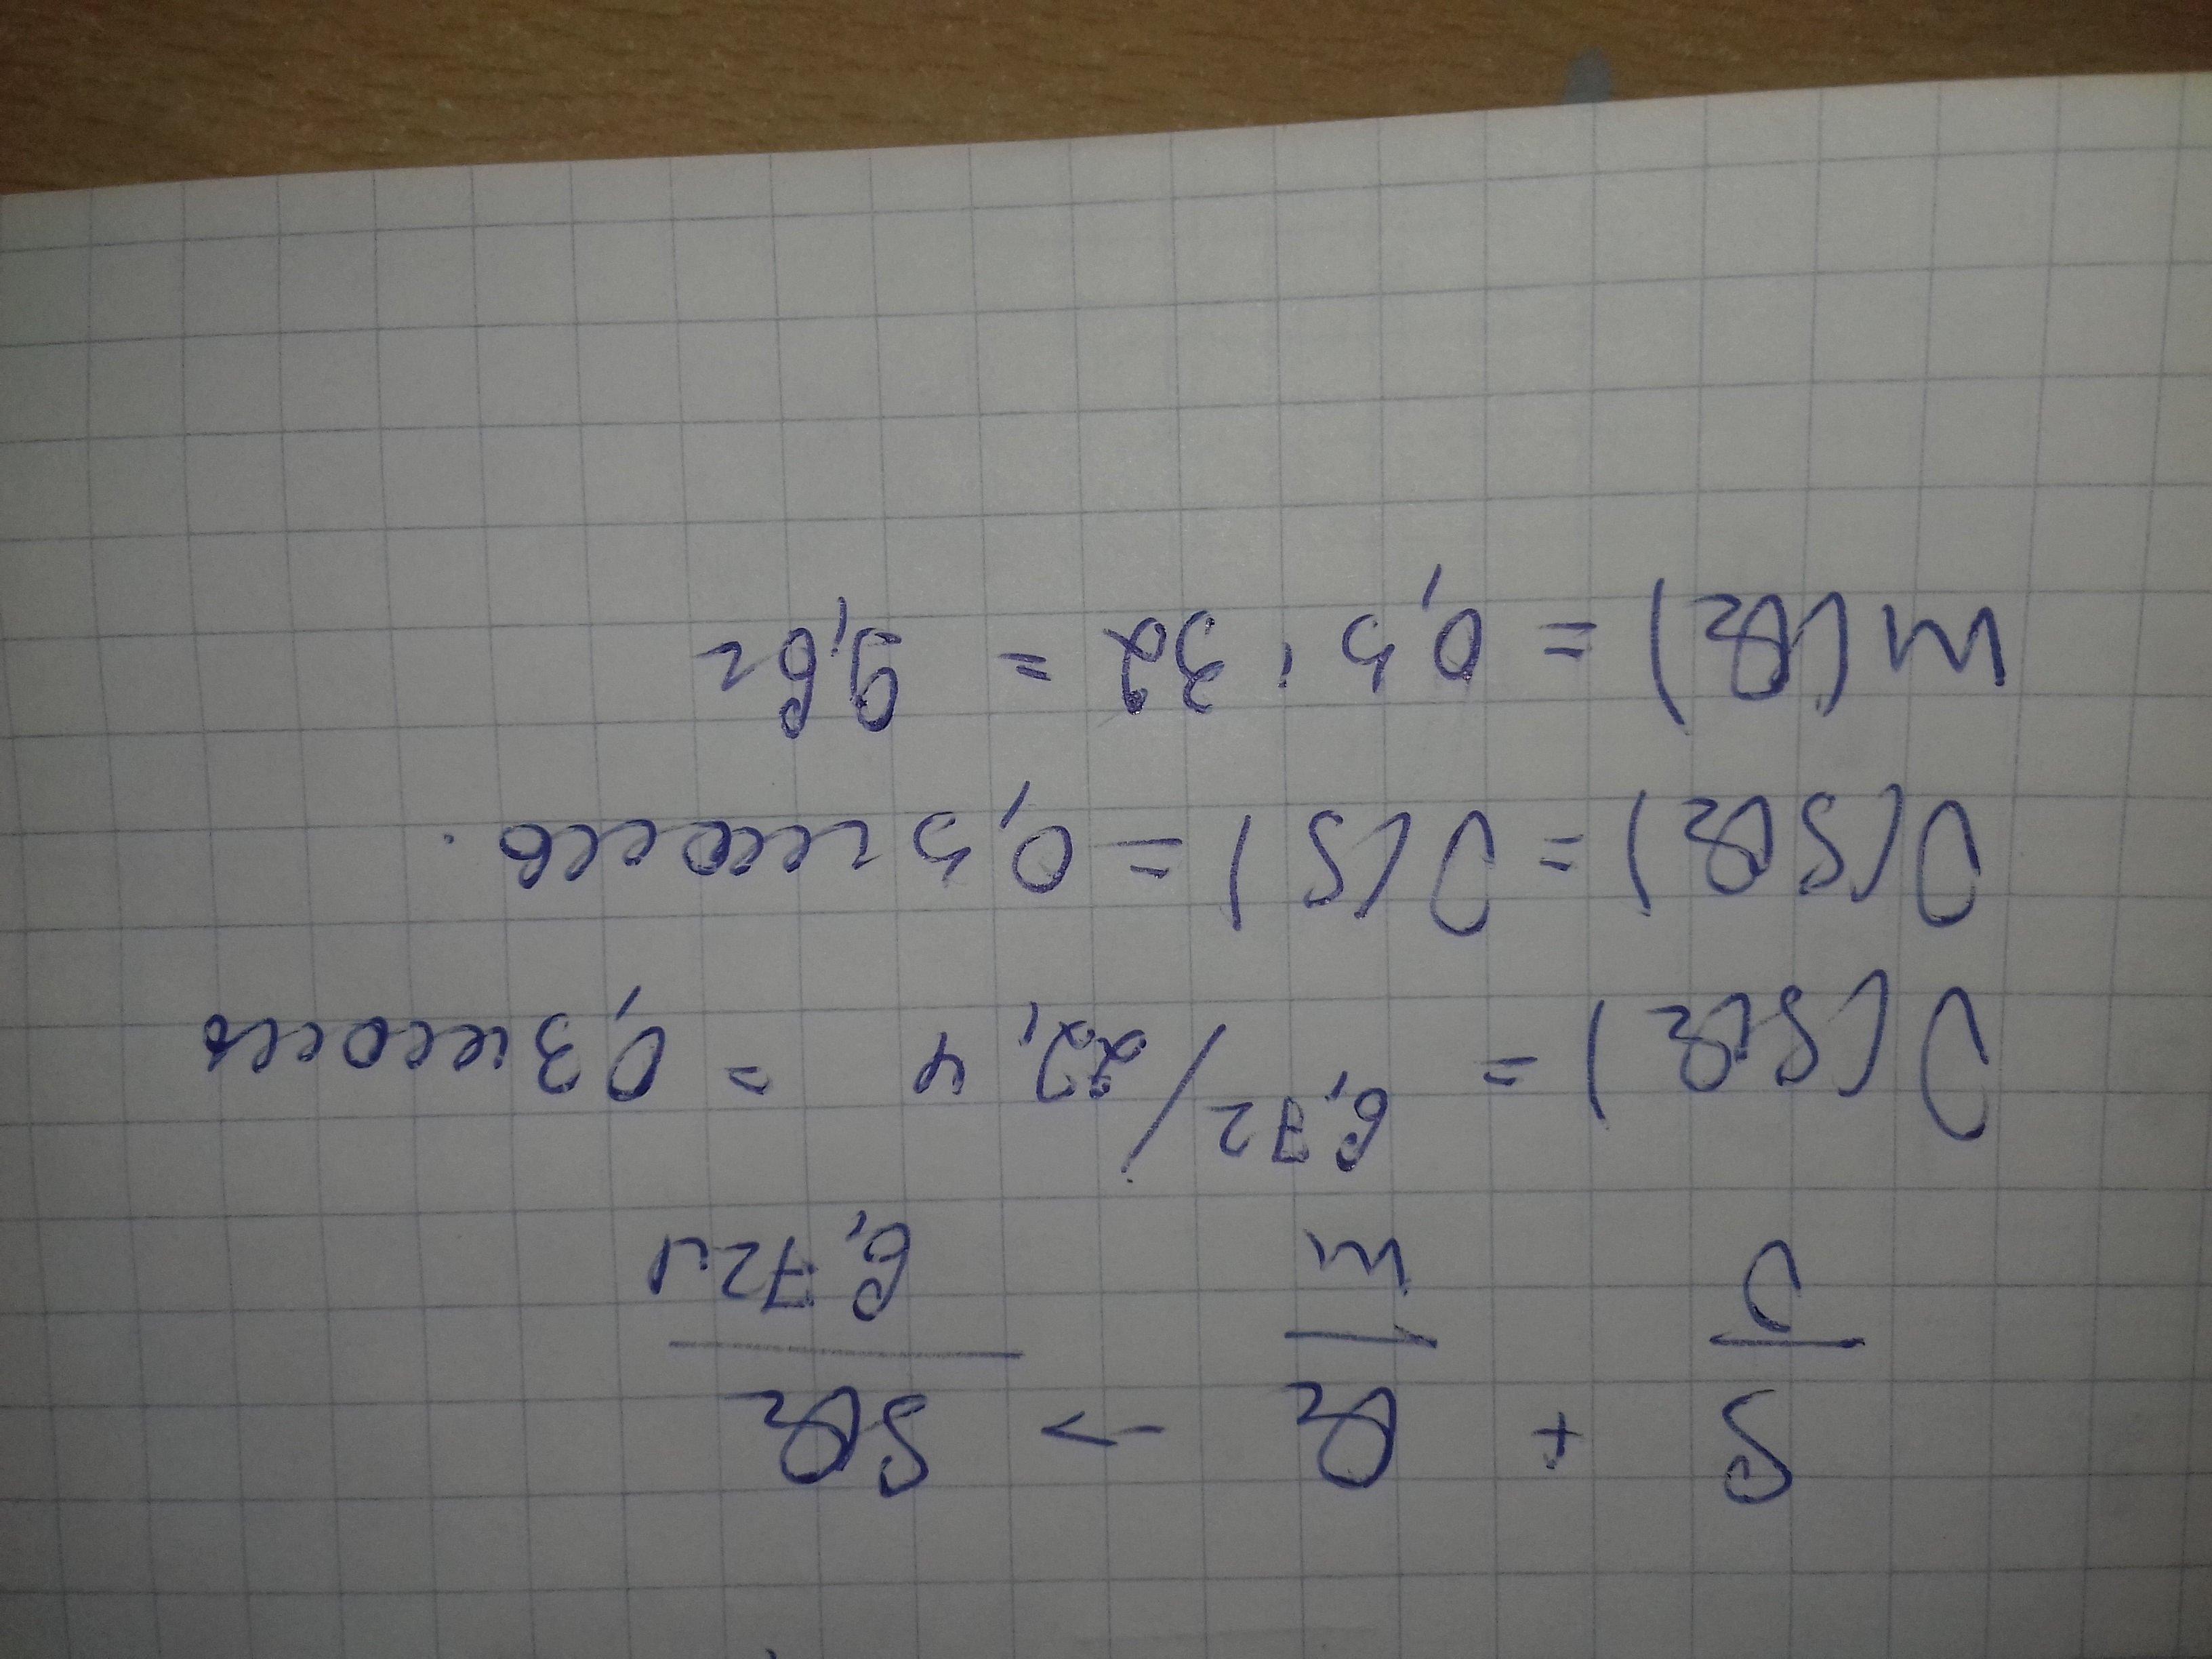 S + O₂ → SO₂
υ m 6,72л
υ(SO₂) = 6,72/22,4 = 0,3 моль
υ(SO₂) = υ(S) = 0,3 моль.
m(O₂) = 0,3 · 32 = 9,6г